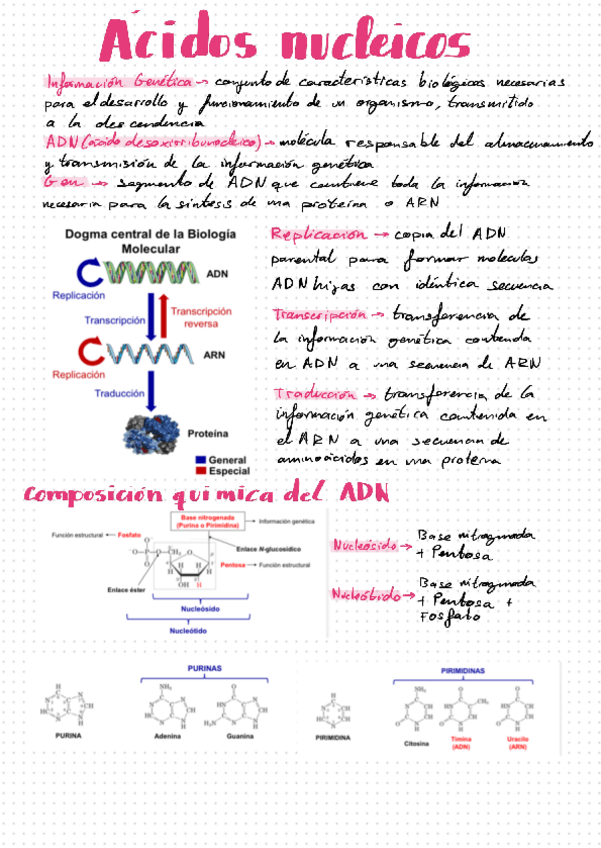 Ácidos nucleicos
Información Genética → conjunto de características biológicas necesarias
para el desarrollo y funcionamiento de un organismo, transmitido
a la descendencia
ADN (ácido desoxirribonucleico) → molécula responsable del almacenamiento
y transmisión de la información genética
Gen → segmento de ADN que contiene toda la información
necesaria para la síntesis de una proteína o ARN
Dogma central de la Biología
Molecular
ADN
Replicación
Transcripción
Transcripción
reversa
ARN
Replicación
Traducción
Proteína
General
Especial
Replicación → copia del ADN
parental para formar moléculas
ADN hijas con idéntica secuencia
Transcripción → transferencia de
la información genética contenida
en ADN a una secuencia de ARN
Traducción → transferencia de la
información genética contenida en
el ARN a una secuencia de
aminoácidos en una proteína
Composición química del ADN
Base nitrogenada
(Purina o Pirimidina)
Información genética
Función estructural
Fosfato
Enlace N-glucosídico
Pentosa
Función estructural
Enlace éster
OH H
Nucleósido
Nucleótido
Nucleósido → Base nitrogenada
+ Pentosa
Nucleótido → Base nitrogenada
+ Pentosa +
Fosfato
PURINAS
PURINA
Adenina
Guanina
PIRIMIDINAS
PIRIMIDINA
Citosina
Timina
(ADN)
Uracilo
(ARN)